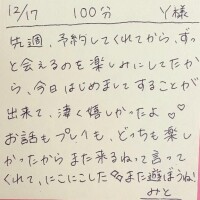 12/17 100分 Y様
先週、予約してくれてから、ずっ
と会えるのを楽しみにしてたか
ら、今日はじめましてすることが
出来て、凄く嬉しかったよ♡♡
お話もプレイも、どっちも楽し
かったからまた来るねって言っ
てくれて、にこにこした♡また遊ぼうね!
みと